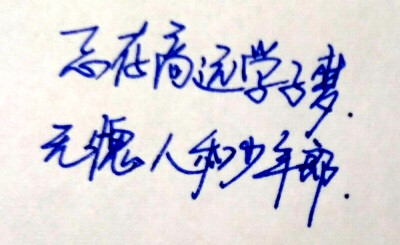 志存高远学子梦.
无愧人和少年郎.